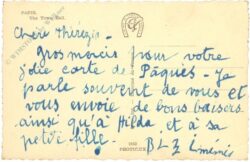 PARIS
The Town Hall.
Chère Thérèze.
Gros mercis pour votre
jolie carte de Pâques. Je
parle souvent de vous et
vous envoie de bons baisers
ainsi qu'à Hilda, et à sa
petite fille. BLZ
PHOTOLUX